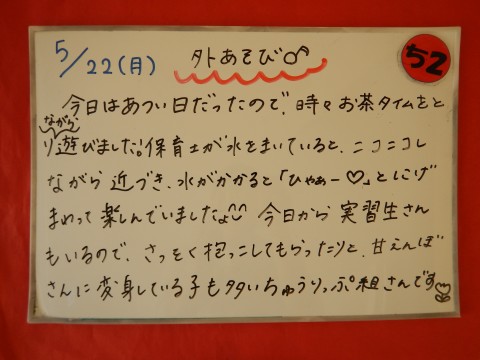 5/22(月) 外あそび♂
ち2
今日はあつい日だったので、時々お茶タイムをと
ながら
り遊びました!保育士が水をまいていると、ニコニコし
ながら近づき、水がかかると「ひゃぁー♡」とにげ
まわって楽しんでいましたよ^^ 今日から実習生さん
もいるので、さっそく抱っこしてもらったりと、甘えんぼ
さんに変身している子も多いちゅうりっぷ組さんです